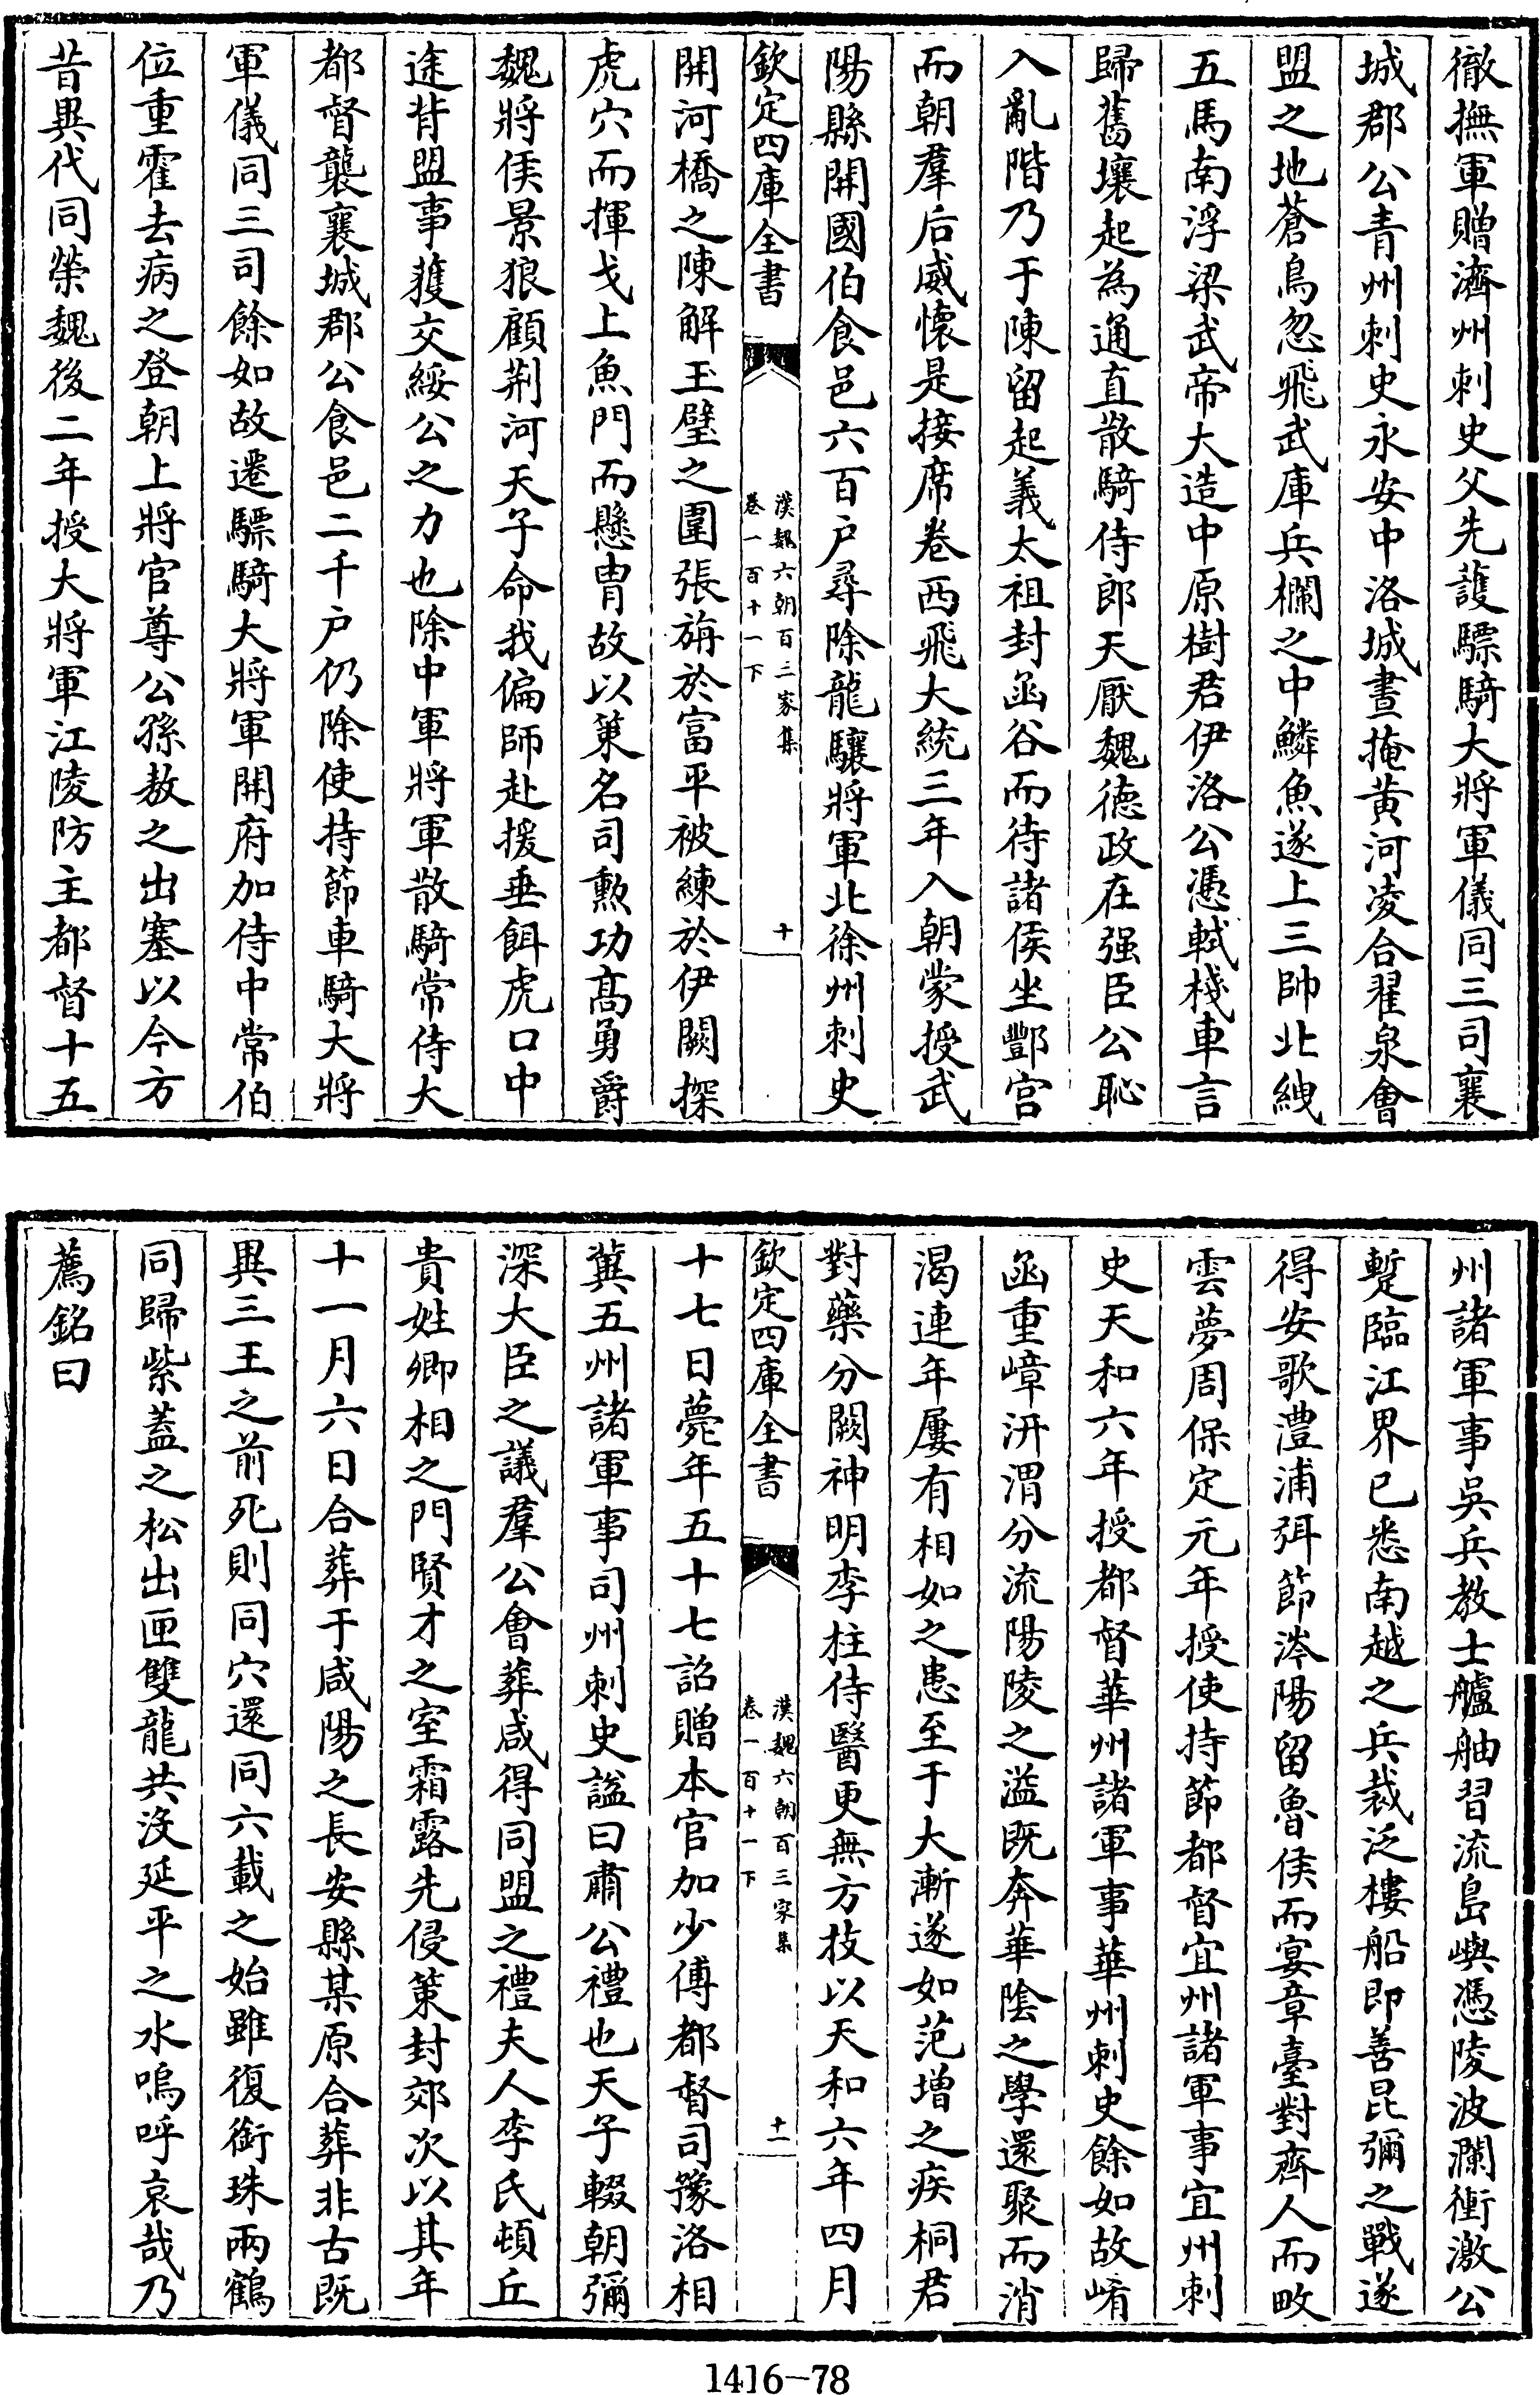 徹撫軍贈濟州刺史父先䕶驃騎大將軍儀同三司襄
城郡公青州刺史永安中洛城晝掩黄河凌合翟泉會
盟之地蒼鳥忽飛武庫兵欄之中鱗魚遂上三帥北絏
五馬南浮梁武帝大造中原樹君伊洛公憑軾棧車言
歸舊壤起為通直散騎侍郎天厭魏德政在强臣公恥
入亂階乃于陳留起義太祖封函谷而待諸侯坐酆宫
而朝羣后威懷是接席卷西飛大統三年入朝蒙授武
陽縣開國伯食邑六百户尋除龍驤將軍北徐州刺史
欽定四庫全書
漢魏六朝百三家集
卷一百十一下
十
開河橋之陳解玉壁之圍張旃於富平被練於伊闕探
虎穴而揮戈上魚門而懸胄故以䇿名司勲功髙勇爵
魏將侯景狼顧荆河天子命我偏師赴援垂餌虎口中
途背盟事獲交綏公之力也除中軍將軍散騎常侍大
都督襲襄城郡公食邑二千户仍除使持節車騎大將
軍儀同三司餘如故遷驃騎大將軍開府加侍中常伯
位重霍去病之登朝上將官尊公孫敖之出塞以今方
昔異代同榮魏後二年授大將軍江陵防主都督十五
州諸軍事吳兵教士艫舳習流島嶼憑陵波瀾衝激公
蹔臨江界已悉南越之兵裁泛樓船即善昆彌之戰遂
得安歌澧浦弭節涔陽留魯侯而宴章臺對齊人而畋
雲夢周保定元年授使持節都督宜州諸軍事宜州刺
史天和六年授都督華州諸軍事華州刺史餘如故崤
函重嶂汧渭分流陽陵之溢既奔華陰之學還聚而消
渴連年屢有相如之患至于大漸遂如范增之疾桐君
對藥分闕神明李柱侍醫更無方技以天和六年四月
欽定四庫全書
漢魏六朝百三家集
卷一百十一下
十一
十七日薨年五十七詔贈本官加少傅都督司豫洛相
冀五州諸軍事司州刺史諡曰肅公禮也天子輟朝彌
深大臣之議羣公會葬咸得同盟之禮夫人李氏頓丘
貴姓卿相之門賢才之室霜露先侵䇿封郊次以其年
十一月六日合葬于咸陽之長安縣某原合葬非古既
異三王之前死則同穴還同六載之始雖復銜珠兩鶴
同歸紫蓋之松出匣雙龍共没延平之水嗚呼哀哉乃
薦銘曰
1416—78